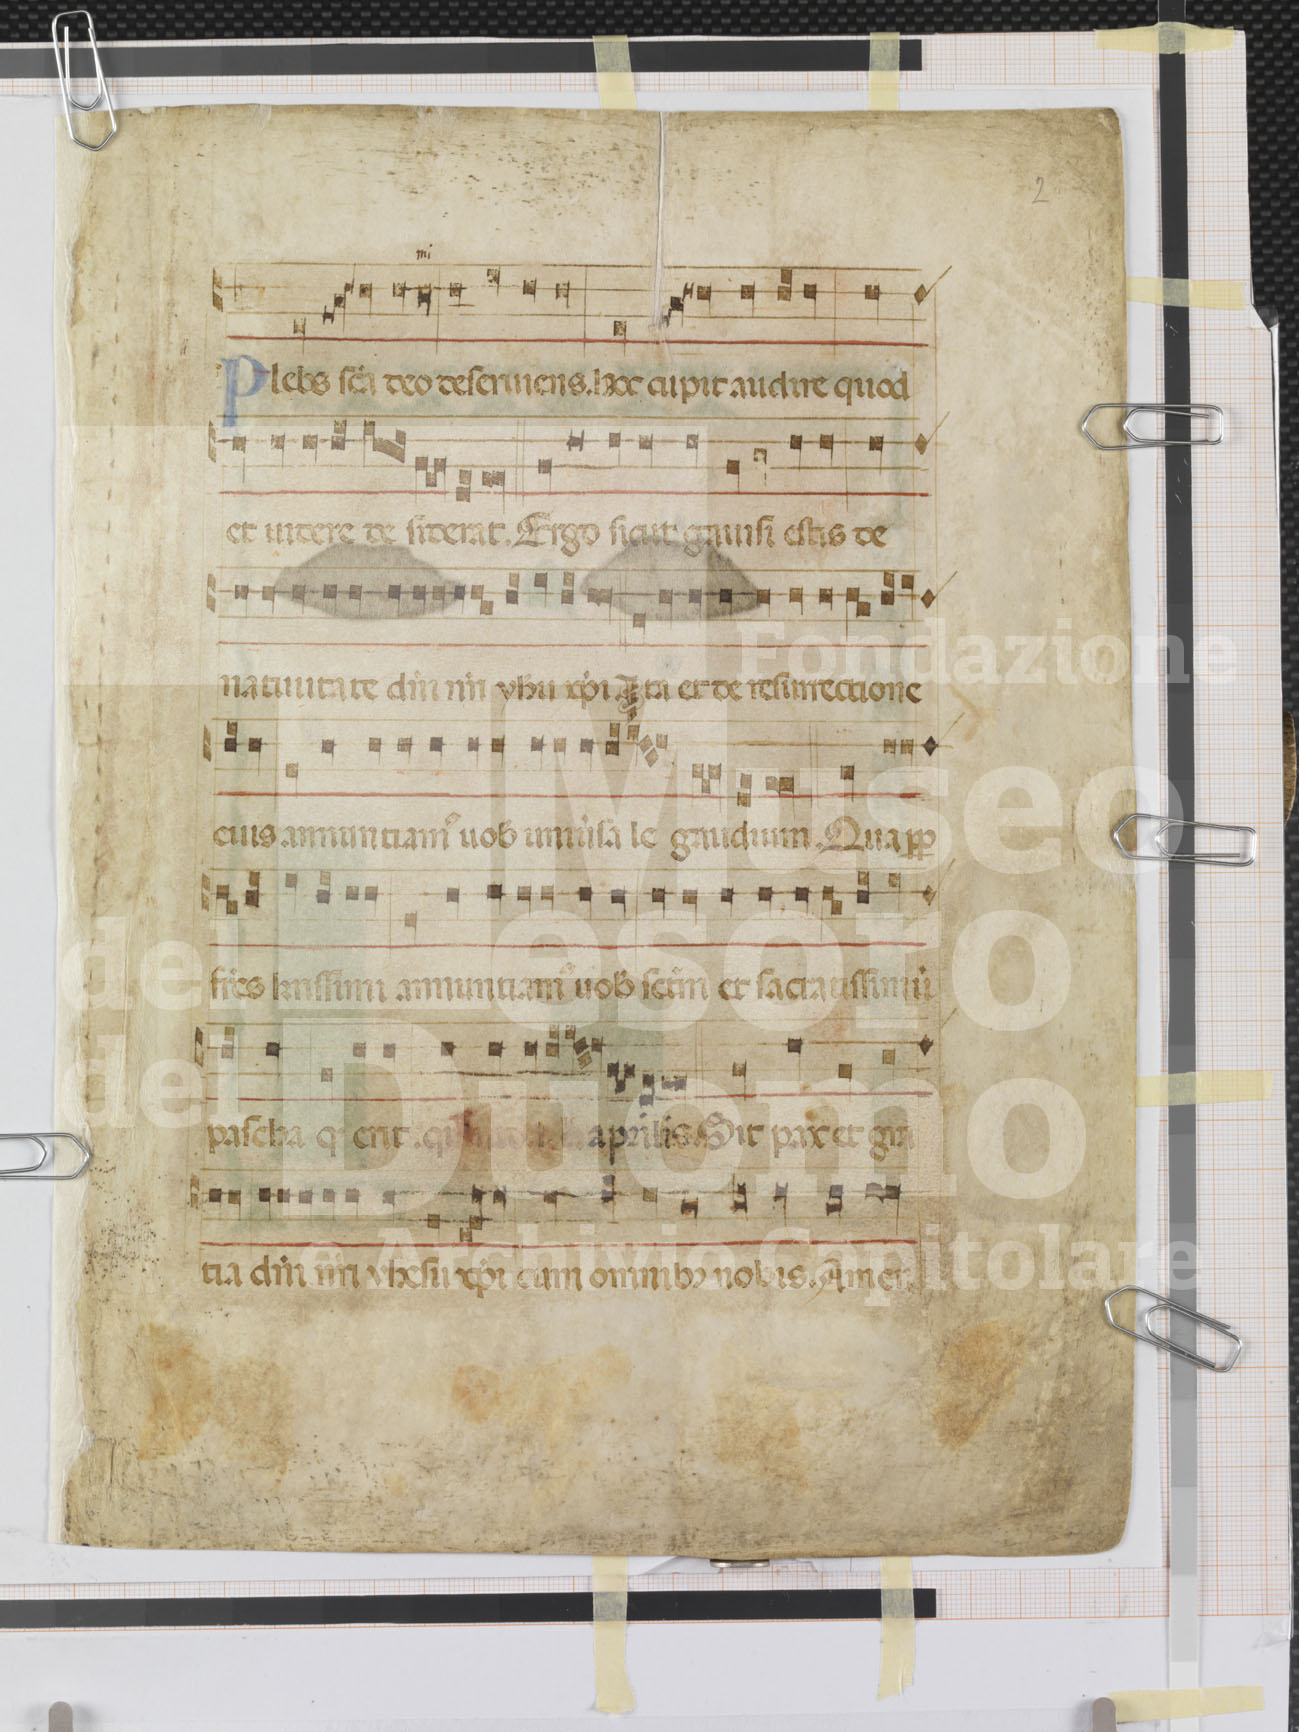 2
mi
Plebs sc̄a deo deseruiens. hoc cupit audire quod
et uidere desiderat. Ergo sicut gauisi estis de
natiuitate dn̄i nr̄i yhu xp̄i Ita et de resurrectione
eius annuntiam⁹ uob gaudium. Qua
fr̄es annuntiam⁹ uob sc̄m et sacratissimū
pascha q erit aprilis. Sit pax et gra
tia dn̄i nr̄i yhesu xp̄i cum omnibȝ uobis. Amen.
Fondazione
Museo
del Tesoro
del Duomo
e Archivio Capitolare